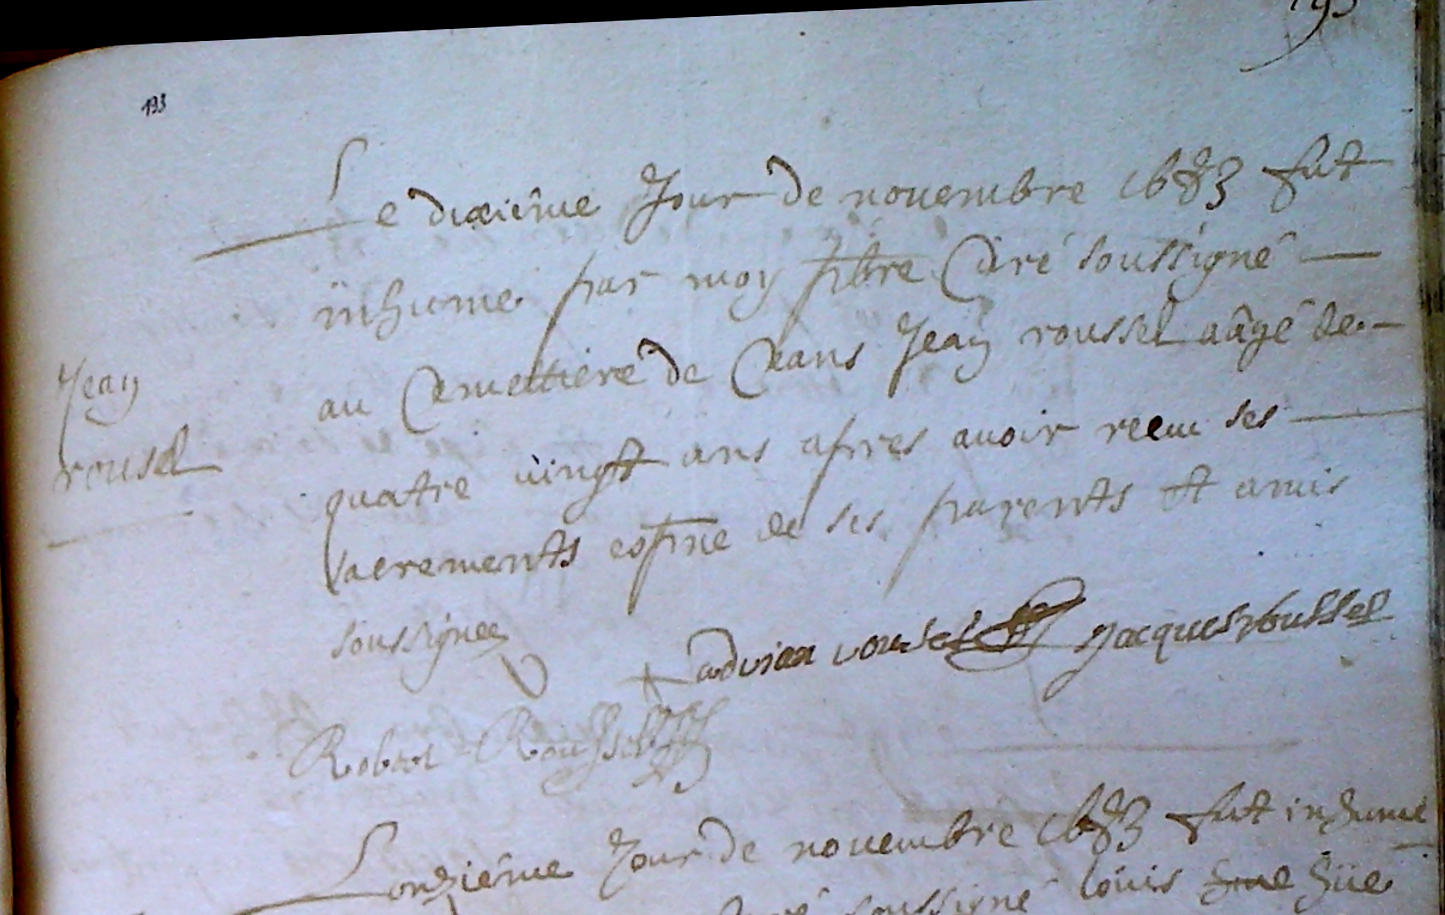 193
193
Le dixiême Jour de nouembre 1683 fut
inhume par moy pbre Curé soussigné
au Cemettiere de Ceans Jean roussel aâgé de
quatre vingt ans apres auoir recu ses
sacrements espnce de ses parents et amis
soussignez
Jean
rousel
adrian roussel Jacques roussel
Robert Roussel
Lonziême Jour de nouembre 1683 fut inhumé
soussigné loüis hüe